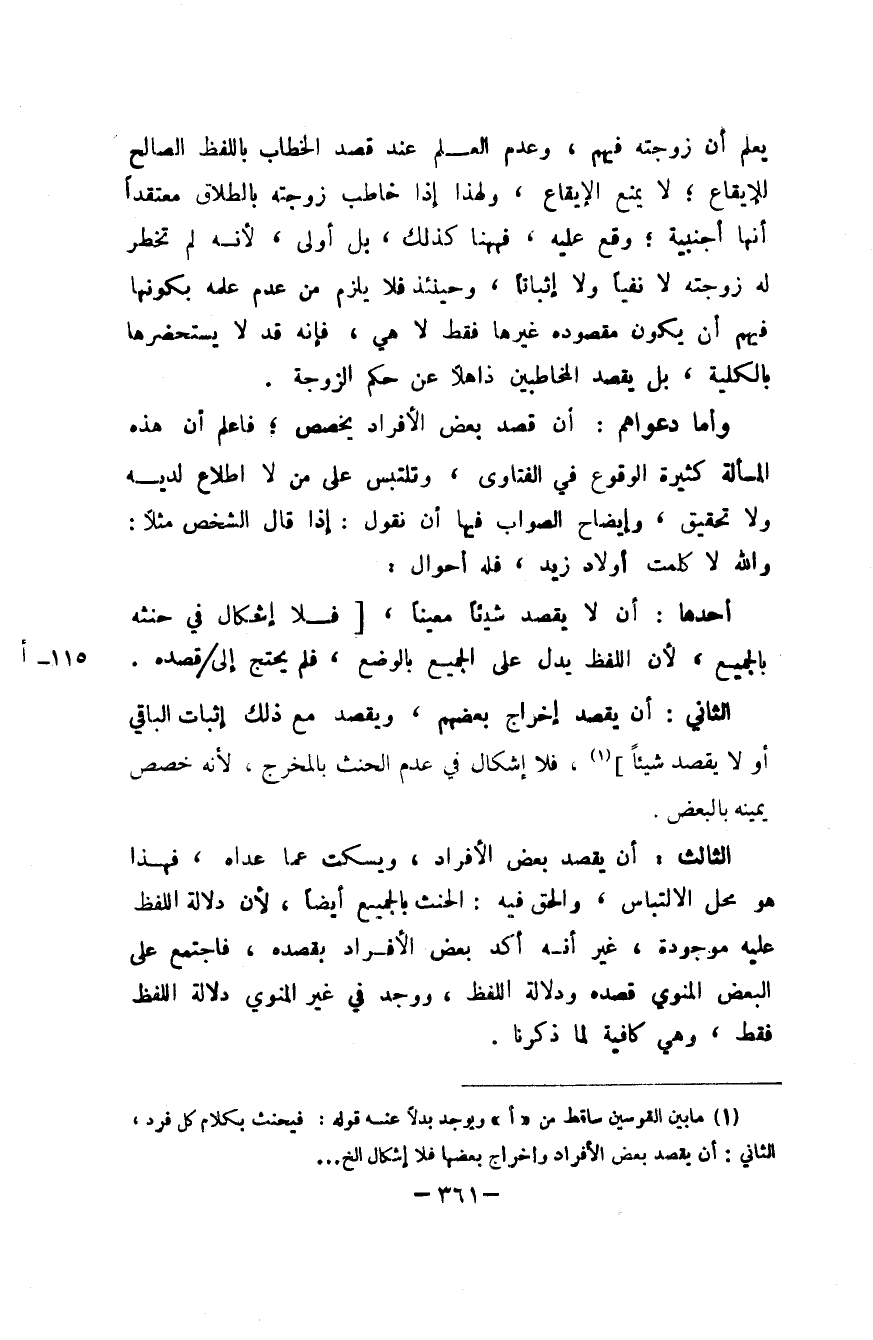 يعلم أن زوجته فيهم ، وعدم العـــلم عند قصد الخطاب باللفظ الصالح
للإيقاع ؛ لا يمنع الإيقاع ، ولهذا إذا خاطب زوجته بالطلاق معتقداً
أنها أجنبية ؛ وقع عليه ، فههنا كذلك ، بل أولى ، لأنـــه لم تخطر
له زوجته لا نفياً ولا إثباتاً ، وحينئذ فلا يلزم من عدم علمه بكونها
فيهم أن يكون مقصوده غيرها فقط لا هي ، فإنه قد لا يستحضرها
بالكلية ، بل يقصد المخاطبين ذاهلاً عن حكم الزوجة .
وأما دعواهم : أن قصد بعض الأفراد يخصص ؛ فاعلم أن هذه
المسألة كثيرة الوقوع في الفتاوى ، وتلتبس على من لا اطلاع لديـــه
ولا تحقيق ، وإيضاح الصواب فيها أن نقول : إذا قال الشخص مثلاً :
والله لا كلمت أولاد زيد ، فله أحوال :
أحدها : أن لا يقصد شيئاً معيناً ، [ فـــلا إشكال في حنثه
بالجميع ، لأن اللفظ يدل على الجميع بالوضع ، فلم يحتج إلى/قصده . ١١٥- أ
الثاني : أن يقصد إخراج بعضهم ، ويقصد مع ذلك إثبات الباقي
أو لا يقصد شيئاً ](١) ، فلا إشكال في عدم الحنث بالمخرج ، لأنه خصص
يمينه بالبعض .
الثالث : أن يقصد بعض الأفراد ، ويسكت عما عداه ، فهـــذا
هو محل الالتباس ، والحق فيه : الحنث بالجميع أيضاً ، لأن دلالة اللفظ
عليه موجودة ، غير أنـــه أكد بعض الأفـــراد بقصده ، فاجتمع على
البعض المنوي قصده ودلالة اللفظ ، ووجد في غير المنوي دلالة اللفظ
فقط ، وهي كافية لما ذكرنا .
(١) مابين القوسين ساقط من « أ » ويوجد بدلاً عنـــه قوله : فيحنث بكلام كل فرد ،
الثاني : أن يقصد بعض الأفراد واخراج بعضها فلا إشكال الخ...
– ٣٦١ –